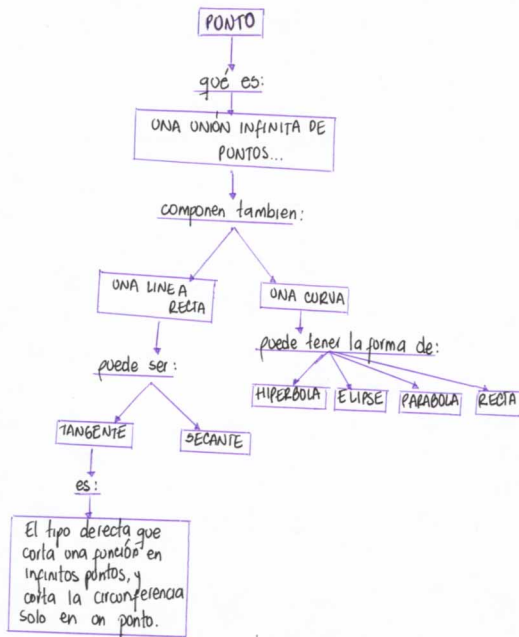 PUNTO
qué es:
UNA UNIÓN INFINITA DE
PUNTOS...
componen tambien:
UNA LINEA
RECTA
UNA CURVA
puede ser:
puede tener la forma de:
HIPERBOLA ELIPSE PARABOLA RECTA
TANGENTE
SECANTE
es:
El tipo de recta que
corta una función en
infinitos puntos, y
corta la circunferencia
solo en un punto.